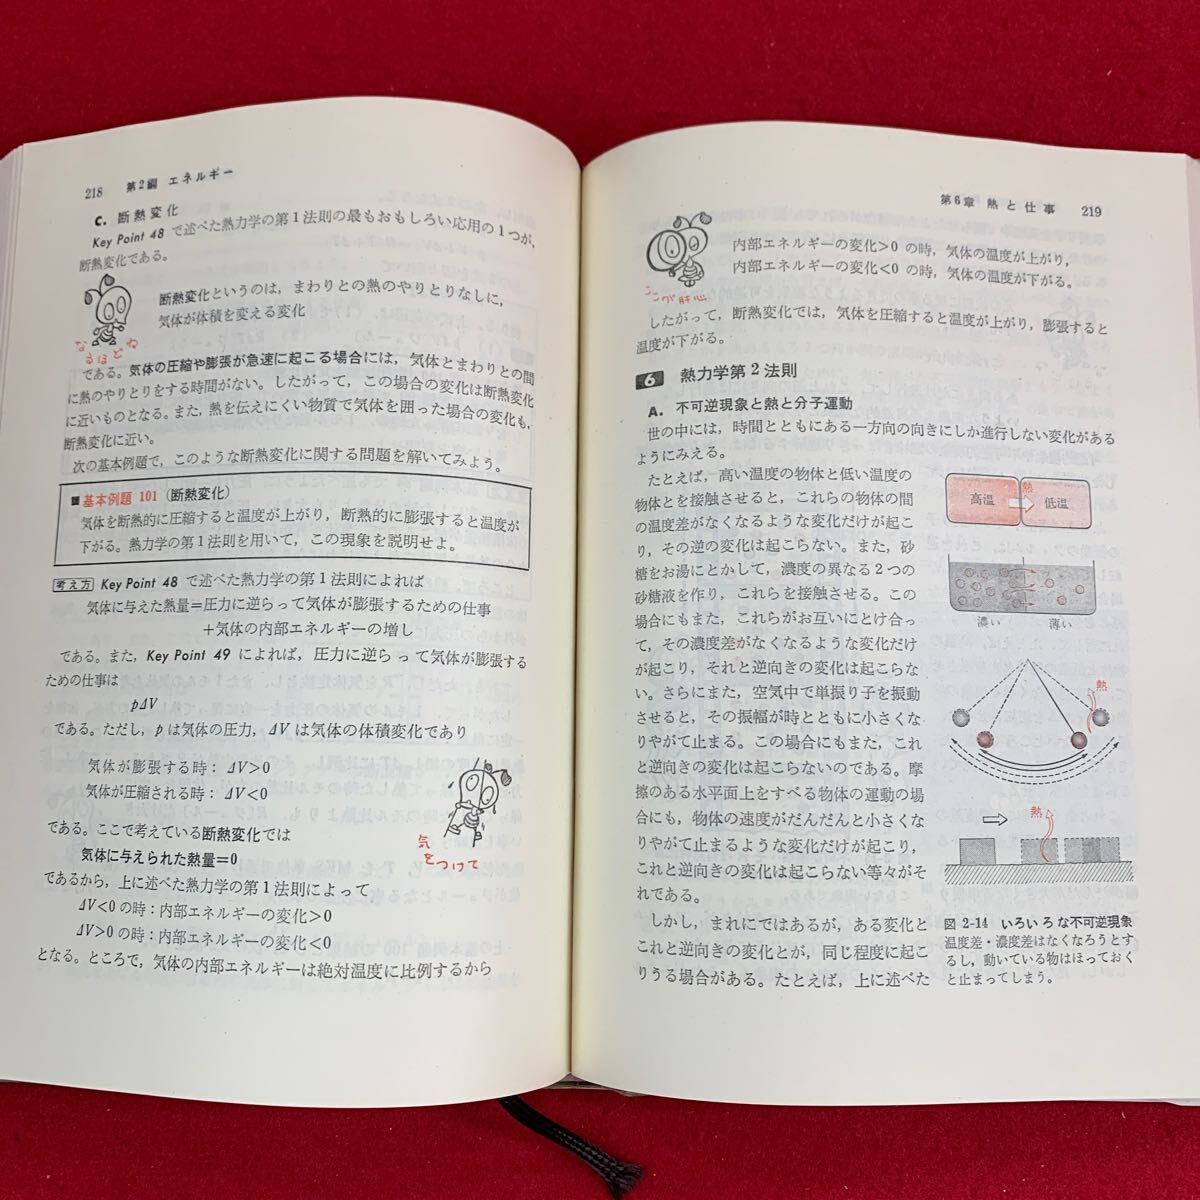 218 第2編 エネルギー
C. 断熱変化
Key Point 48 で述べた熱力学の第1法則の最もおもしろい応用の1つが,
断熱変化である。
断熱変化というのは, まわりとの熱のやりとりなしに,
気体が体積を変える変化
なるほどね
である。気体の圧縮や膨張が急速に起こる場合には, 気体とまわりとの間
に熱のやりとりをする時間がない。したがって, この場合の変化は断熱変化
に近いものとなる。また, 熱を伝えにくい物質で気体を囲った場合の変化も,
断熱変化に近い。
次の基本例題で, このような断熱変化に関する問題を解いてみよう。
■基本例題 101 (断熱変化)
気体を断熱的に圧縮すると温度が上がり, 断熱的に膨張すると温度が
下がる。熱力学の第1法則を用いて, この現象を説明せよ。
考え方 Key Point 48 で述べた熱力学の第1法則によれば
気体に与えた熱量=圧力に逆らって気体が膨張するための仕事
+気体の内部エネルギーの増し
である。また, Key Point 49 によれば, 圧力に逆らって気体が膨張する
ための仕事は
pΔV
である。ただし, pは気体の圧力, ΔVは気体の体積変化であり
気体が膨張する時: ΔV>0
気体が圧縮される時: ΔV<0
である。ここで考えている断熱変化では
気体に与えられた熱量=0
気をつけて
であるから, 上に述べた熱力学の第1法則によって
ΔV<0の時:内部エネルギーの変化>0
ΔV>0の時:内部エネルギーの変化<0
となる。ところで, 気体の内部エネルギーは絶対温度に比例するから
第6章 熱と仕事 219
内部エネルギーの変化>0 の時, 気体の温度が上がり,
内部エネルギーの変化<0 の時, 気体の温度が下がる。
ここが肝心
したがって, 断熱変化では, 気体を圧縮すると温度が上がり, 膨張すると
温度が下がる。
6 熱力学第2法則
A. 不可逆現象と熱と分子運動
世の中には, 時間とともにある一方向の向きにしか進行しない変化がある
ようにみえる。
たとえば, 高い温度の物体と低い温度の
物体とを接触させると, これらの物体の間
の温度差がなくなるような変化だけが起こ
り, その逆の変化は起こらない。また, 砂
糖をお湯にとかして, 濃度の異なる2つの
砂糖液を作り, これらを接触させる。この
場合にもまた, これらがお互いにとけ合っ
て, その濃度差がなくなるような変化だけ
が起こり, それと逆向きの変化は起こらな
い。さらにまた, 空気中で単振り子を振動
させると, その振幅が時とともに小さくな
りやがて止まる。この場合にもまた, これ
と逆向きの変化は起こらないのである。摩
擦のある水平面上をすべる物体の運動の場
合にも, 物体の速度がだんだんと小さくな
りやがて止まるような変化だけが起こり,
これと逆向きの変化は起こらない等々がそ
れである。
しかし, まれにではあるが, ある変化と
これと逆向きの変化とが, 同じ程度に起こ
りうる場合がある。たとえば, 上に述べた
熱
高温 低温
濃い 薄い
熱
熱
図 2-14 いろいろな不可逆現象
温度差・濃度差はなくなろうとす
るし, 動いている物はほっておく
と止まってしまう。